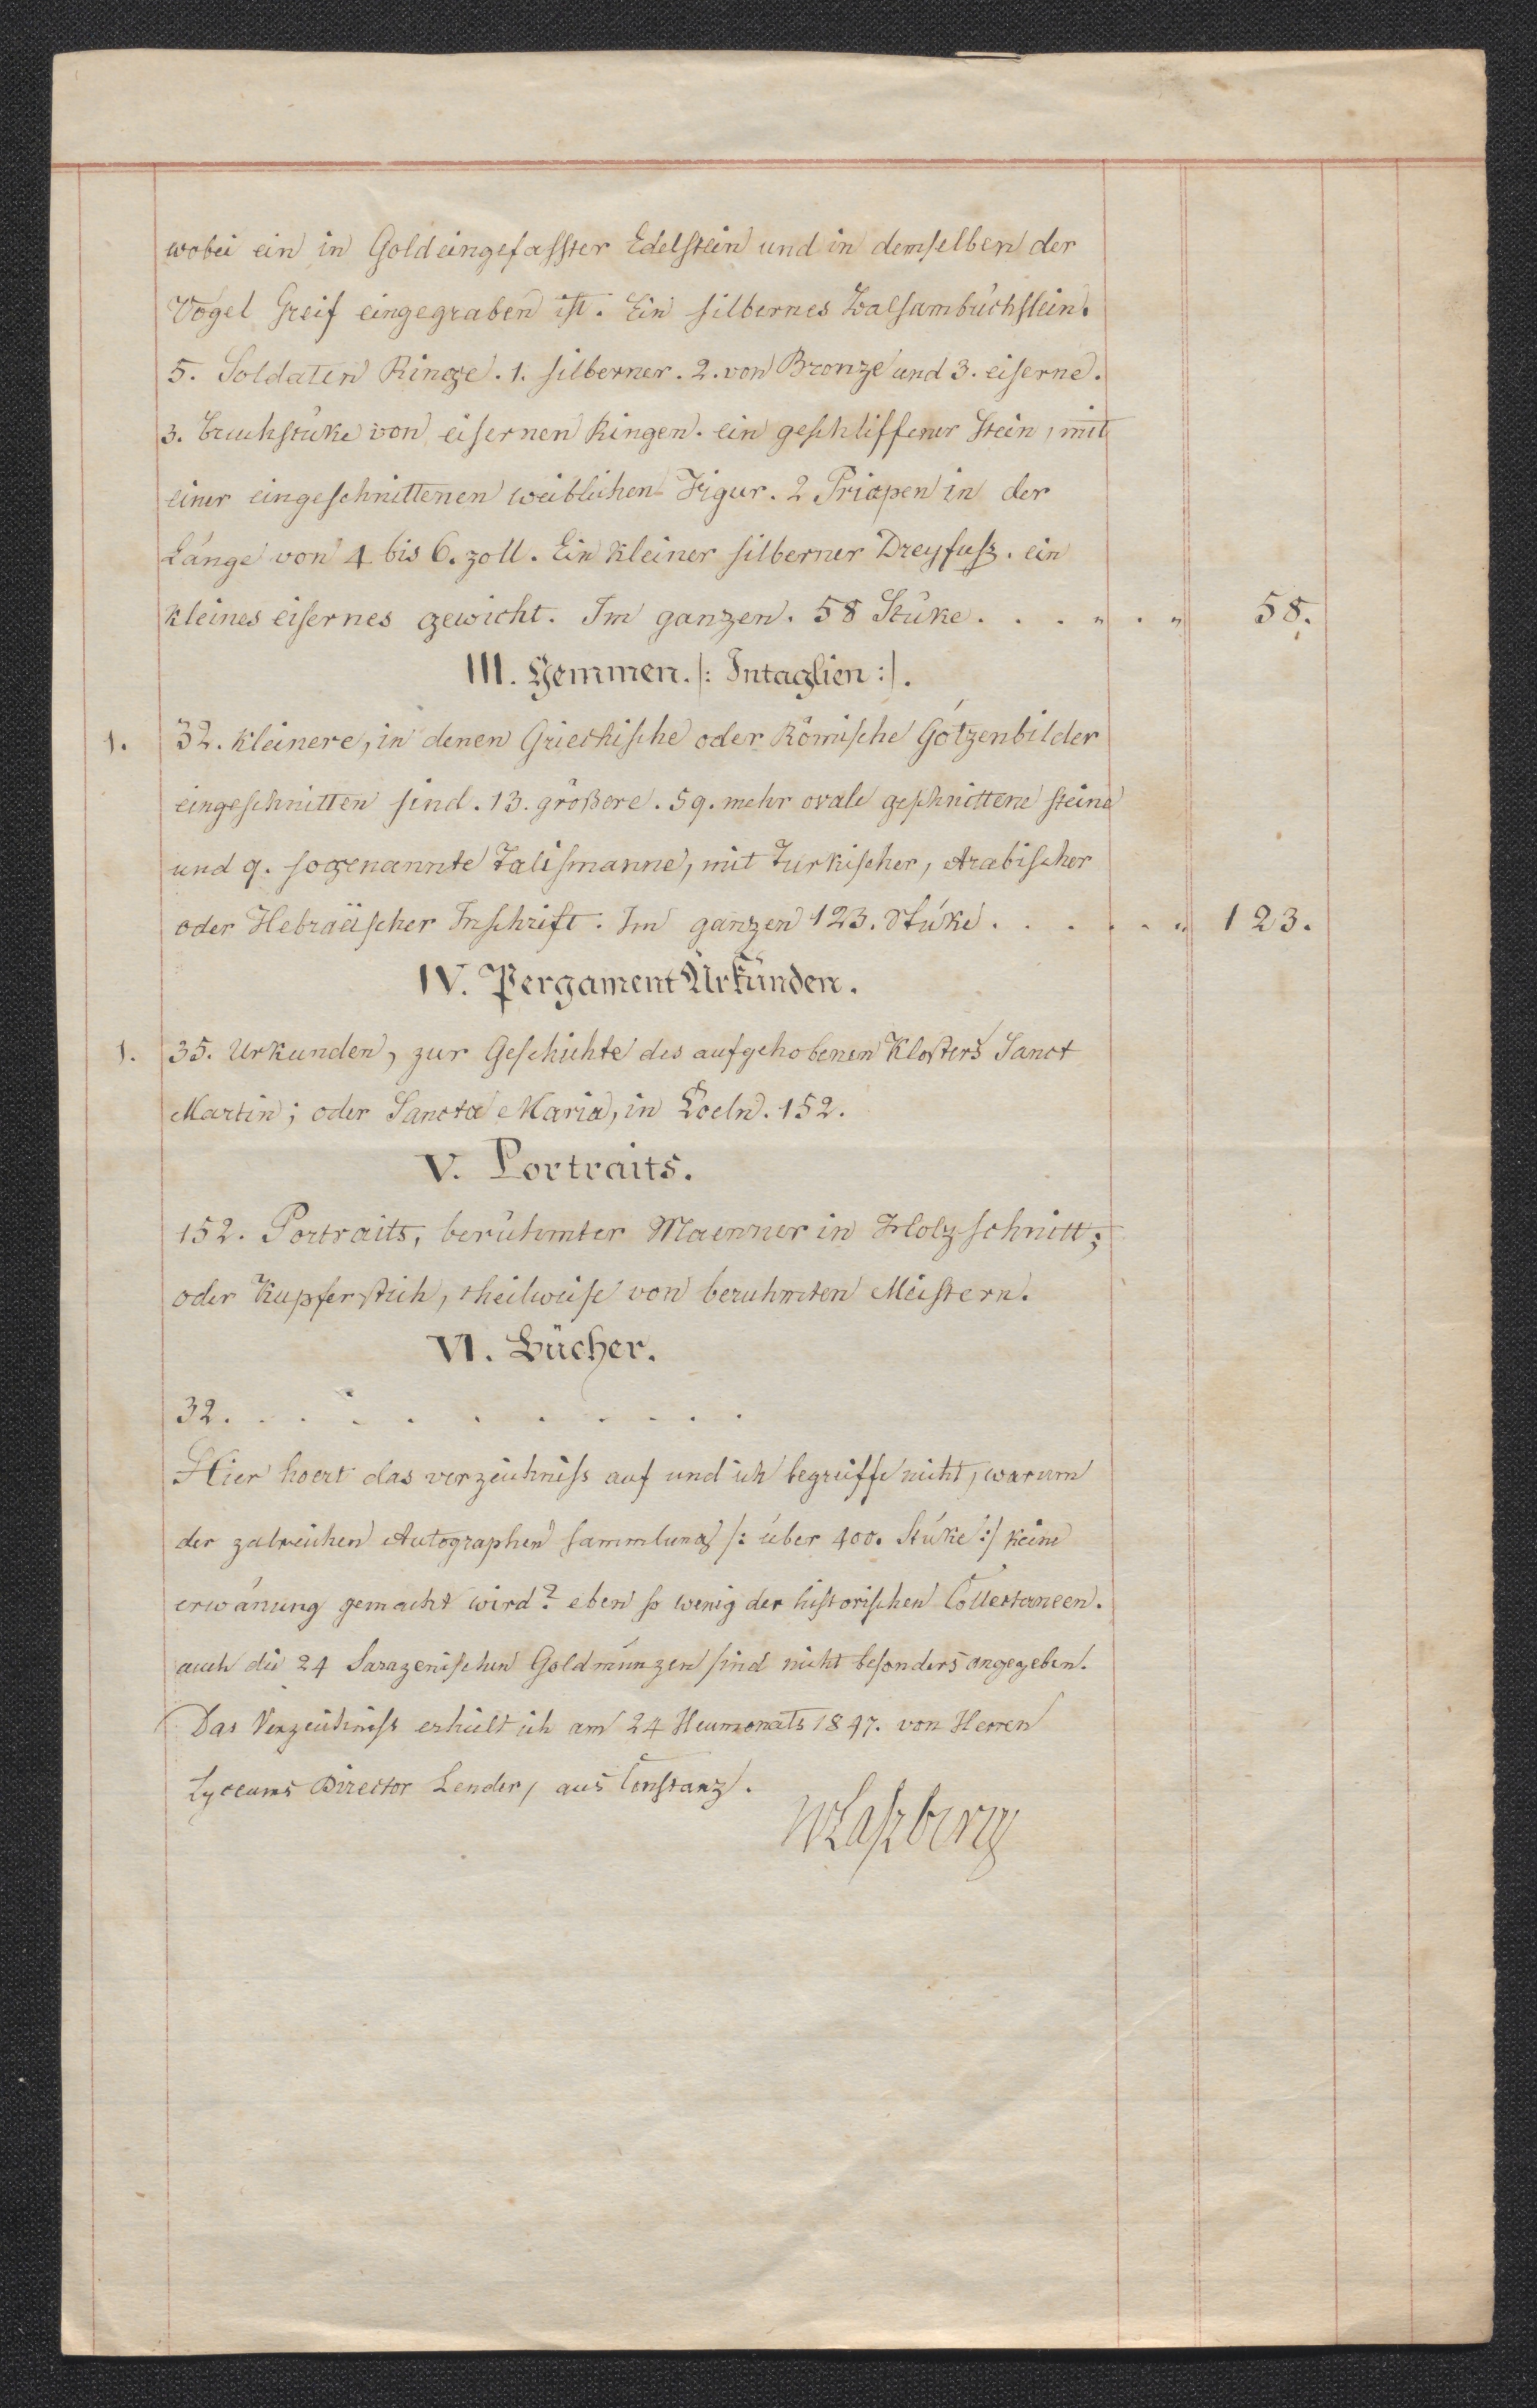 wobei ein in Gold eingefasster Edelstein und in demselben der
Vogel Greif eingegraben ist. Ein silbernes Balsambüchslein.
5. Soldaten Ringe. 1. silberner. 2. von Bronze und 3. eiserne.
3. Bruchstüke von eisernen Ringen. ein geschliffener Stein, mit
einer eingeschnittenen weiblichen Figur. 2 Priapen in der
Länge von 4 bis 6. zoll. Ein kleiner silberner Dreyfusz. ein
kleines eisernes gewicht. Im ganzen. 58 Stüke. . . „ . „ 58.
III. Gemmen. /: Intaglien :/.
1. 32. kleinere, in denen Griechische oder Römische Götzenbilder
eingeschnitten sind. 13. größere. 59. mehr ovale geschnittene steine
und 9. sogenannte Talismanne, mit Türkischer, Arabischer
oder Hebräischer Inschrift. Im ganzen 123. Stüke. . . . . . „ 123.
IV. Pergament Urkunden.
1. 35. Urkunden, zur Geschichte des aufgehobenen Klosters Sanct
Martin; oder Sancta Maria, in Coeln. 152.
V. Portraits.
152. Portraits, berühmter Maenner in Holzschnitt;
oder Kupferstich, theilweise von beruhmten Meistern.
VI. Bücher.
32. . . . . . . . . . .
Hier hoert das verzeichniss auf und ich begreiffe nicht, warum
der zalreichen Autographen sammlung /: über 400. Stüke :/ keine
erwänung gemacht wird? eben so wenig der historischen Collectaneen.
auch die 24 Sarazenischen Goldmünzen sind nicht besonders angegeben.
Das Verzeichniss erhielt ich am 24 Heumonats 1847. von Herren
Lyceums Director Lender, aus Constanz.
Laszberg